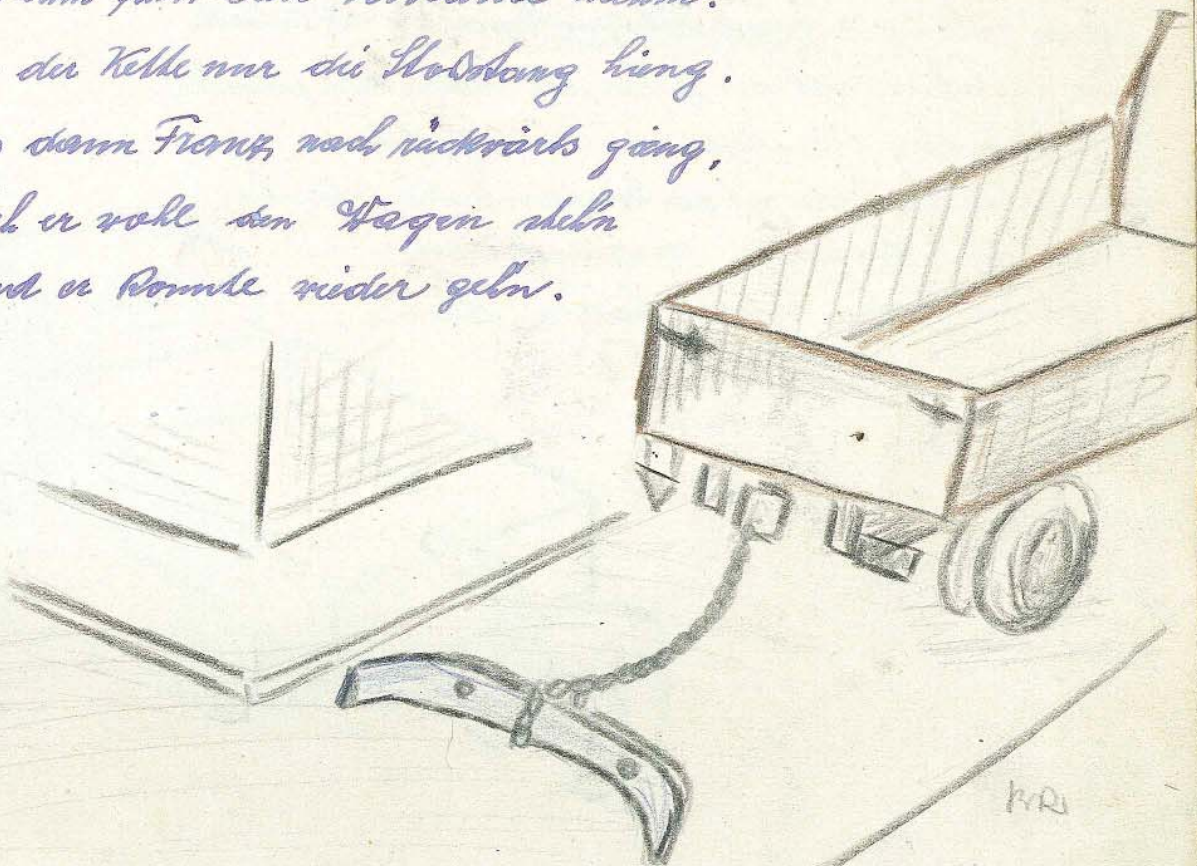 der Kette nur die Stoßstang hieng.
dann Franz nach rückwärts gieng,
h er wohl den Wagen steh'n
nd er konnte wieder geh'n.